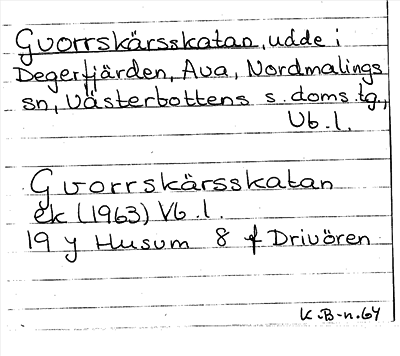 Gvorrskärsskatan, udde i
Degerfjärden, Ava, Nordmalings
sn, Västerbottens s. doms.tg.,
Vb. l.
Gvorrskärsskatan
ek (1963) Vb. l.
19 y Husum 8 f Drivören
K.B-n.64